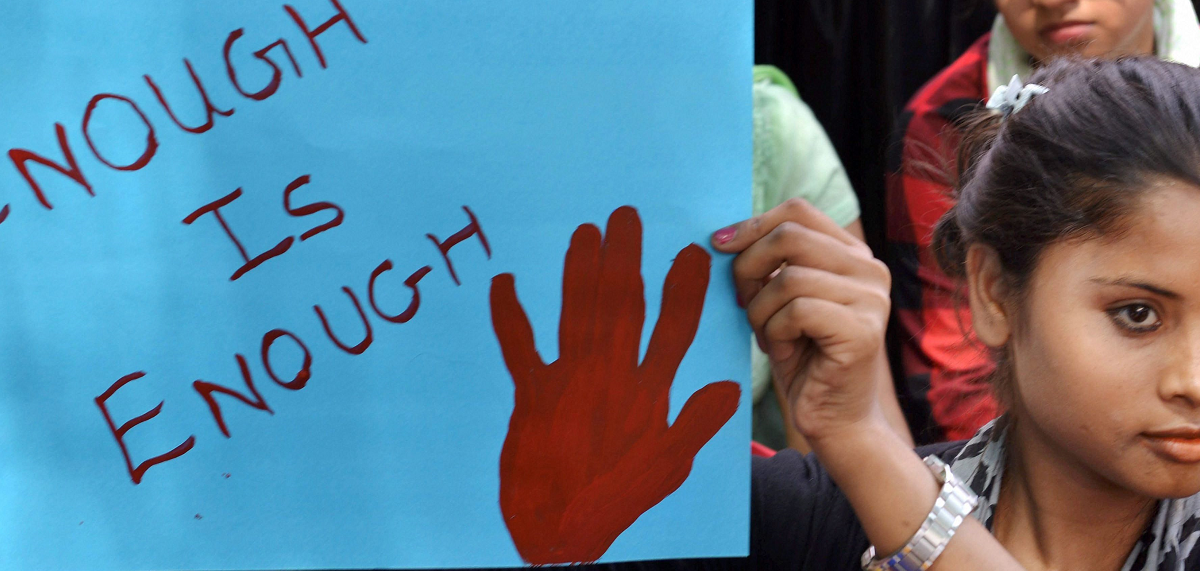 NOUGH
Is
ENOUGH